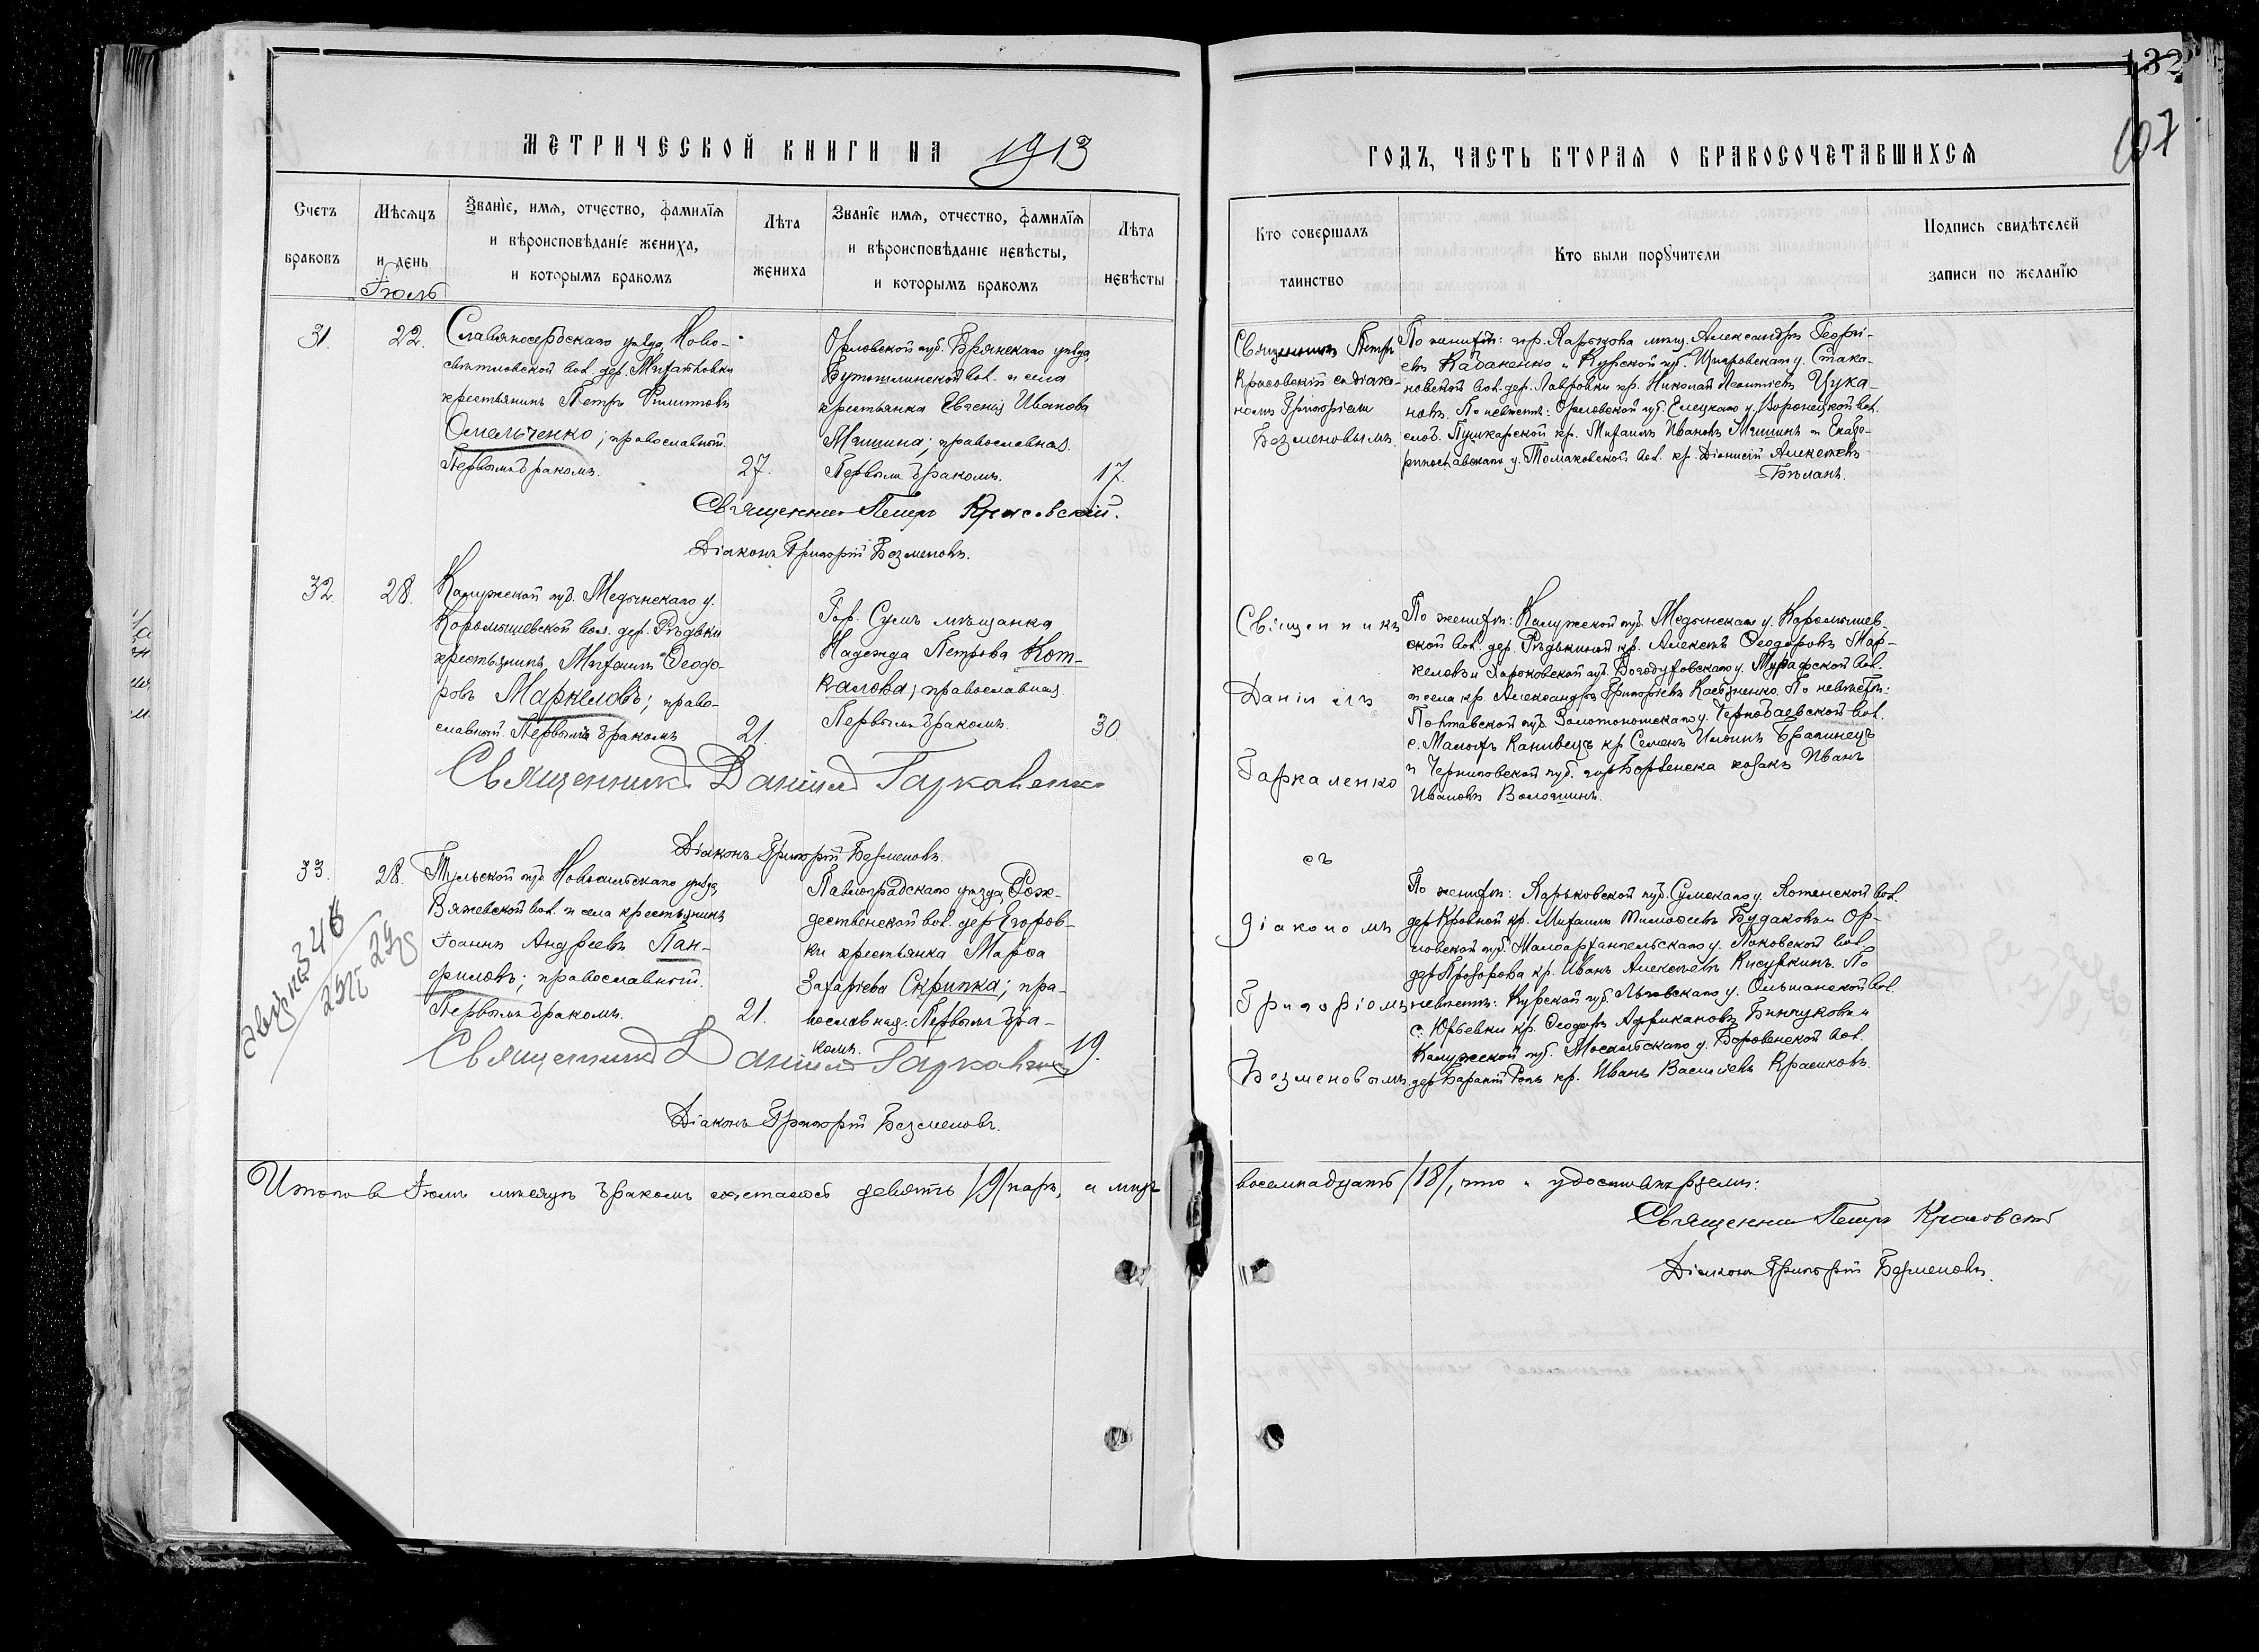 132
107
МЕТРИЧЕСКОЙ КНИГИ НА 1913
Счетъ
браковъ
Мѣсяцъ
и день
Званіе, имя, отчество, фамилія
и вѣроисповѣданіе жениха,
и которымъ бракомъ
Лѣта
жениха
Званіе имя, отчество, фамилія
и вѣроисповѣданіе невѣсты,
и которымъ бракомъ
Лѣта
невѣсты
Іюль
31.
22.
Славяносербскаго уѣзда, Ново-
свѣтловской вол. дер.
крестьянинъ Петръ Филиповъ
Омельченко; православный.
Первымъ бракомъ.
27.
Орловской губ. Брянскаго уѣзда,
вол. и села
крестьянка Евгенія Иванова
Мишина; православная.
Первымъ бракомъ.
17.
Священникъ Петръ Красовскій.
Діаконъ Григорій Безменовъ.
32.
28.
Калужской губ. Медынскаго у.
Карамышевской вол. дер. Рѣдькина
крестьянинъ Михаилъ Ѳеодо-
ровъ Маркеловъ; право-
славный. Первымъ бракомъ
21.
Гор. Сумъ мѣщанка
Надежда Петрова Кот-
калова; православная
Первымъ бракомъ.
30
Священникъ Даніилъ Гаркаленко
Діаконъ Григорій Безменовъ.
33.
28.
Тульской губ. Новосильскаго уѣзда,
Вяжевской вол. и села крестьянинъ
Іоаннъ Андреевъ Пан-
филовъ; православный.
Первымъ бракомъ.
21.
Павлоградскаго уѣзда, Рож-
дественской вол. дер. Егоров-
ки крестьянка Марѳа
Захаріева Скрипка; пра-
вославная. Первымъ бра-
комъ.
19.
Священникъ Даніилъ Гаркаленко
Діаконъ Григорій Безменовъ.
Итого въ Іюлѣ мѣсяцѣ бракомъ сочеталось девять /9/ паръ, а лицъ
ГОДЪ, ЧАСТЬ ВТОРАЯ О БРАКОСОЧЕТАВШИХСЯ
Кто совершалъ
таинство
Кто были поручители
Подпись свидѣтелей
записи по желанію
Священникъ Петръ
Красовскій съ діако-
номъ Григоріемъ
Безменовымъ.
По женихѣ: гор. Харькова мѣщ. Александръ Георгі-
евъ Кабаненко и Курской губ. Щигровскаго у. Стака-
новской вол. дер. Лавровки кр. Николай Леонтіевъ Цука-
новъ. По невѣстѣ: Орловской губ. Елецкаго у. Воронецкой вол.
слоб. Пушкарской кр. Михаилъ Ивановъ Мишинъ и Екате-
ринославскаго у. Томаковской вол. кр. Діонисій Алексѣевъ
Бѣланъ.
Священникъ
Даніилъ
Гаркаленко
съ
діакономъ
Григоріемъ
Безменовымъ
По женихѣ: Калужской губ. Медынскаго у. Карамышев-
ской вол. дер. Рѣдькиной кр. Алексѣй Ѳеодоровъ Мар-
келовъ и Харьковской губ. Богодуховскаго у. Мурафской вол.
и села кр. Александръ Григоріевъ Касьяненко. По невѣстѣ:
Полтавской губ. Золотоношскаго у. Чернобаевской вол.
с. Малыхъ Канивецъ кр. Семенъ Ильинъ Брагинецъ
и Черниговской губ. гор. Борзенска козакъ Иванъ
Ивановъ Волошинъ.
По женихѣ: Харьковской губ. Сумскаго у. Хотенской вол.
дер. Кровной кр. Михаилъ Тимоѳеевъ Будаковъ и Ор-
ловской губ. Малоархангельскаго у. вол.
дер. Прозорова кр. Иванъ Алексѣевъ Кисуркинъ. По
невѣстѣ: Курской губ. Льговскаго у. Ольшанской вол.
с. Юрьевки кр. Ѳеодоръ Африкановъ Бинчуковъ и
Калужской губ. Мосальскаго у. вол.
дер. кр. Иванъ Васильевъ Красиковъ.
восемнадцать /18/, что и удостовѣряемъ:
Священникъ Петръ Красовскій
Діаконъ Григорій Безменовъ.